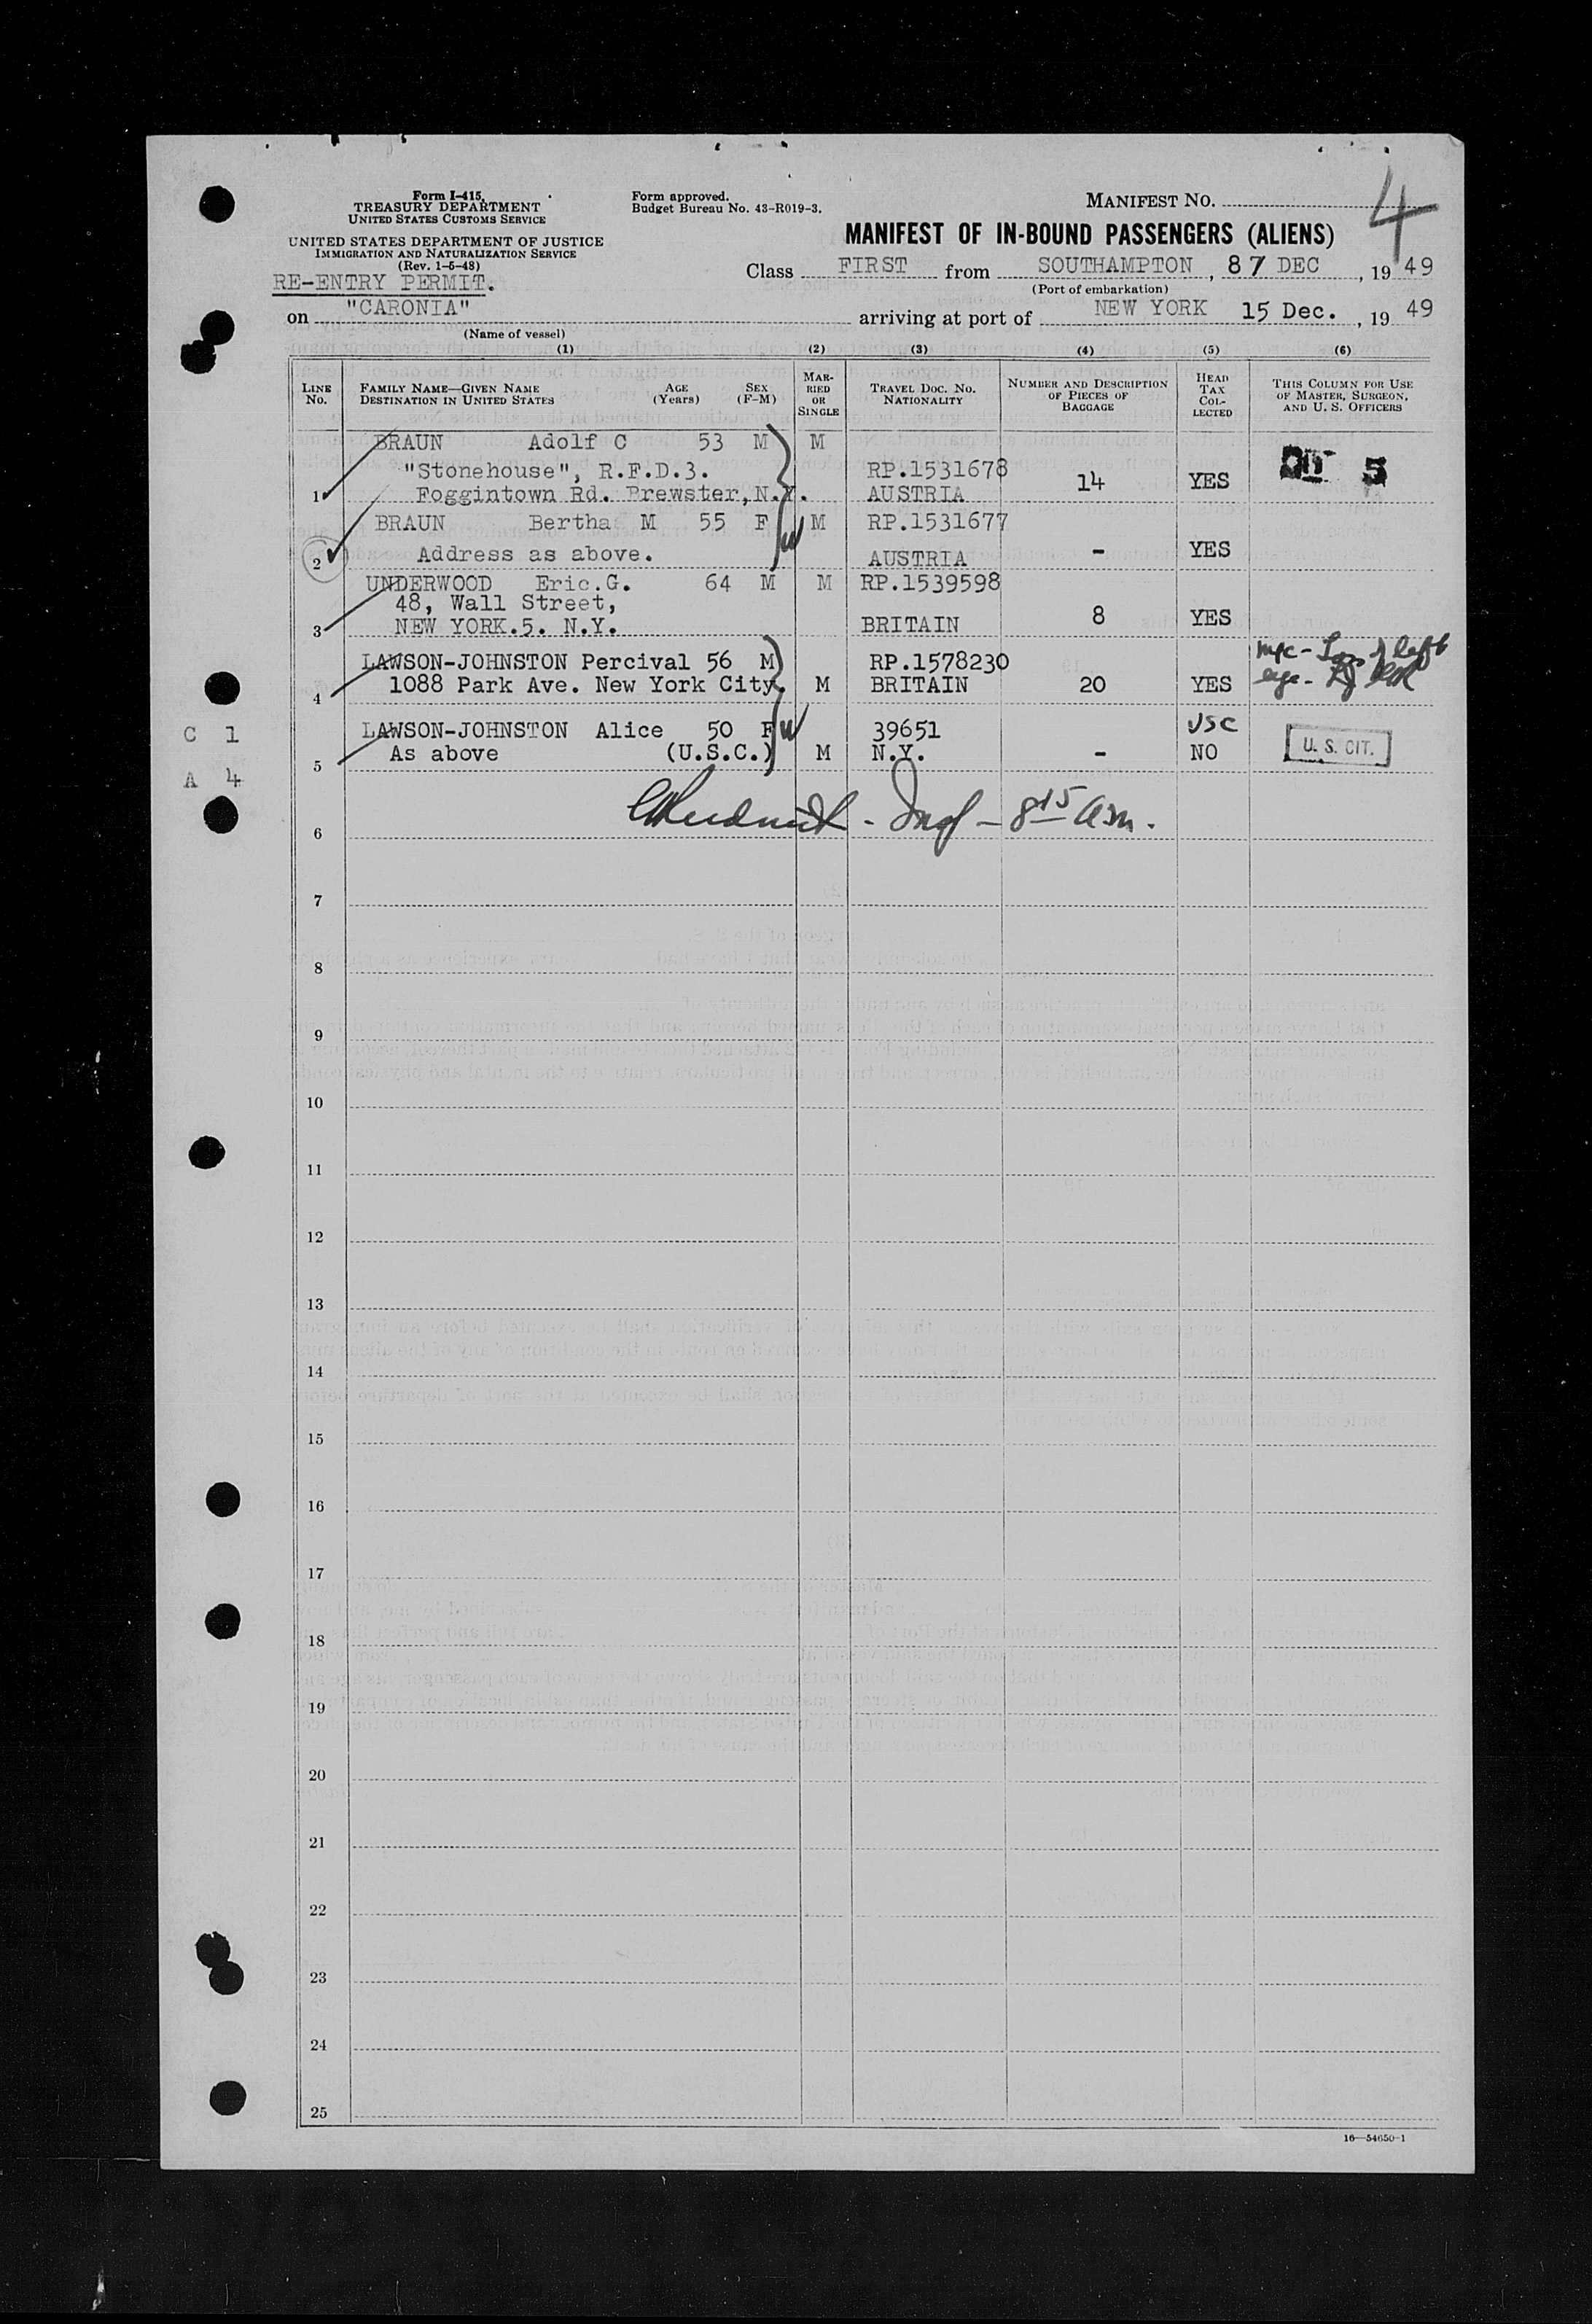 Form I-415
TREASURY DEPARTMENT
UNITED STATES CUSTOMS SERVICE
UNITED STATES DEPARTMENT OF JUSTICE
IMMIGRATION AND NATURALIZATION SERVICE
(Rev. 1-5-48)
RE-ENTRY PERMIT.
Form approved.
Budget Bureau No. 43-R019-3.
MANIFEST NO. 4
MANIFEST OF IN-BOUND PASSENGERS (ALIENS)
Class FIRST from SOUTHAMPTON, 87 DEC, 19 49
(Port of embarkation)
on "CARONIA" arriving at port of NEW YORK 15 Dec., 19 49
(Name of vessel)
(1) (2) (3) (4) (5) (6)
LINE NO.
FAMILY NAME—GIVEN NAME
DESTINATION IN UNITED STATES
AGE (Years)
SEX (F-M)
MARRIED OR SINGLE
TRAVEL DOC. NO. NATIONALITY
NUMBER AND DESCRIPTION OF PIECES OF BAGGAGE
HEAD TAX COLLECTED
THIS COLUMN FOR USE OF MASTER, SURGEON, AND U. S. OFFICERS
BRAUN Adolf C 53 M M
"Stonehouse", R.F.D.3. RP.1531678 5
1 Foggintown Rd. Brewster, N.Y. AUSTRIA 14 YES
BRAUN Bertha M 55 F W M RP.1531677
2 Address as above. AUSTRIA - YES
UNDERWOOD Eric.G. 64 M M RP.1539598
48, Wall Street,
3 NEW YORK.5. N.Y. BRITAIN 8 YES
LAWSON-JOHNSTON Percival 56 M RP.1578230 left
4 1088 Park Ave. New York City. M BRITAIN 20 YES eye -
C 1 LAWSON-JOHNSTON Alice 50 F W 39651 USC
5 As above (U.S.C.) M N.Y. - NO U. S. CIT.
A 4
8 15 am.
6
7
8
9
10
11
12
13
14
15
16
17
18
19
20
21
22
23
24
25
16—54650-1